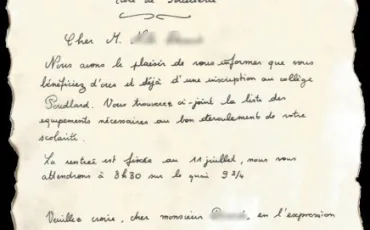 de Sorcellerie
Cher M.
Nous avons le plaisir de vous informer que vous
bénéficiez d'ores et déjà d'une inscription au collège
Poudlard. Vous trouverez ci-joint la liste des
équipements nécessaires au bon déroulement de votre
scolarité.
La rentrée est fixée au 11 juillet, nous vous
attendrons à 8h30 sur le quai 9 3/4
Veuillez croire, cher monsieur en l'expression